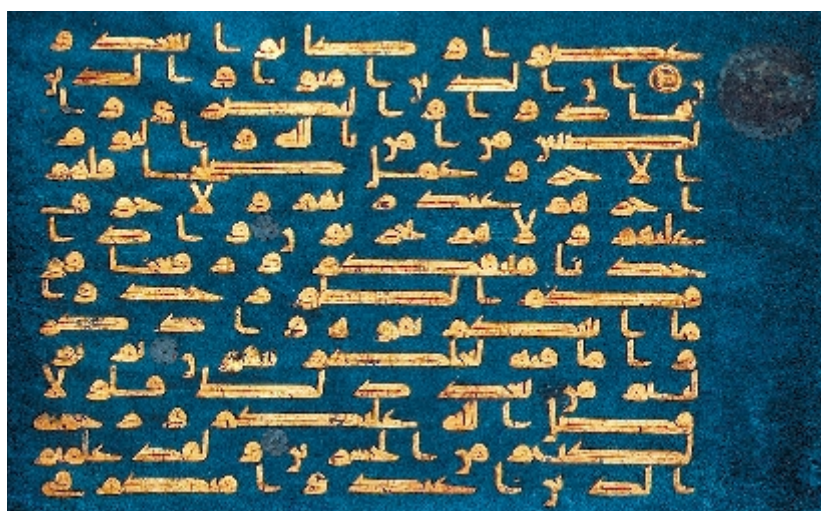 عصوا وكانوا يعتدو
ن ان الذين امنوا والذين
هادوا والنصرى وا
لصبين من امن بالله واليو
م الاخر وعمل صلحا فلهم
اجرهم عند ربهم ولا خوف
عليهم ولا هم يحزنون واذ ا
خذنا ميثقكم ورفعنا فو
قكم الطور خذوا
ما اتينكم بقوة واذكر
وا ما فيه لعلكم تتقون ثم تو
ليتم من بعد ذلك فلولا
فضل الله عليكم ورحمته
لكنتم من الخسرين ولقد علمتم
الذين اعتدوا منكم في